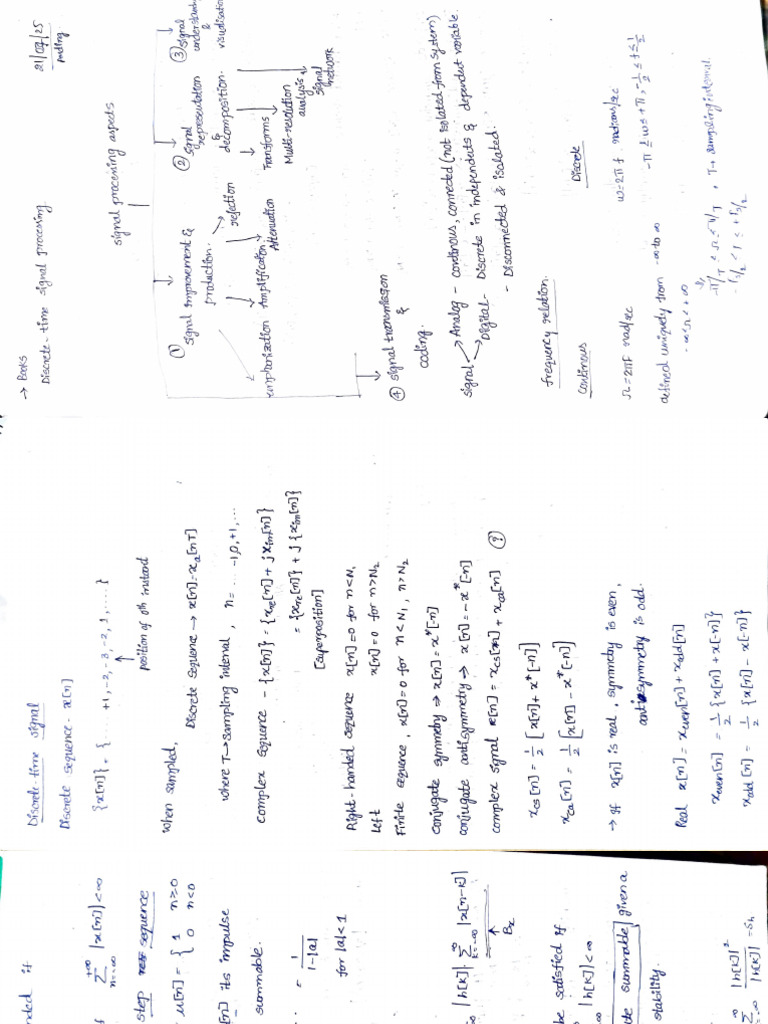 21/07/25
→ Books
Discrete-time signal processing.
signal processing aspects
① signal improvement &
production.
② signal
representation
&
decomposition.
③ signal
understanding
&
visualisation
rejection
empharization Amplification
Attenuation
Transforms
Multi-revolution
analysis
signal
network
④ signal transmission
&
coding.
signal → Analog - continous, connected (not isolated from system)
Digital - Discrete in independents & dependent variable.
- Disconnected & isolated.
frequency relation.
continous
Discrete
Ω = 2πF rad/sec
ω = 2πf radians/sec
defined uniquely from -∞ to ∞
-π ≤ ω ≤ +π, -1/2 ≤ f ≤ 1/2
-∞ < Ω < +∞
-π/T ≤ Ω ≤ π/T, T → sampling interval.
Discrete-time signal
Discrete sequence - x[n]
{x[n]} = { ..... +1, -2, -3, -2, 1, ..... }
↑
position of 0th instand
When sampled,
Discrete sequence → x[n] = xa[nT]
where T → sampling interval, n = ... -1, 0, +1, ...
Complex sequence - {x[n]} = {xre[n] + jxim[n]}
= {xre[n]} + j{xim[n]}
[superposition]
Right-handed sequence x[n] = 0 for n < N1
Left x[n] = 0 for n > N2
Finite sequence, x[n] = 0 for n < N1, n > N2
conjugate symmetry → x[n] = x*[-n]
conjugate antisymmetry → x[n] = -x*[-n]
complex signal x[n] = xcs[n] + xca[n] ?
xcs[n] = 1/2 [x[n] + x*[-n]]
xca[n] = 1/2 [x[n] - x*[-n]]
→ If x[n] is real, symmetry is even,
antisymmetry is odd.
Real x[n] = xeven[n] + xodd[n]
xeven[n] = 1/2 {x[n] + x[-n]}
xodd[n] = 1/2 {x[n] - x[-n]}
nded if
+∞ ∑ n=-∞ |x[n]| < ∞
step sequence
u[n] = { 1 n≥0
0 n<0
[n] its impulse
summable.
= 1/(1-|a|)
for |a| < 1
|h[k]| ∞ ∑ k=-∞ |x[n-k]|
↑
Bx
be satisfied if
|h[k]| < ∞
te summable given a
stability.
|h[k]|²/|h[k]| = Sh